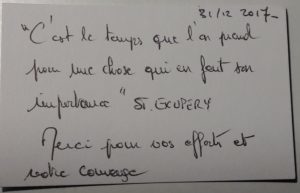 31/12 2017_
"C'est le temps que l'on prend
pour une chose qui en fait son
importance" St. EXUPERY
Merci pour vos efforts et
votre courage